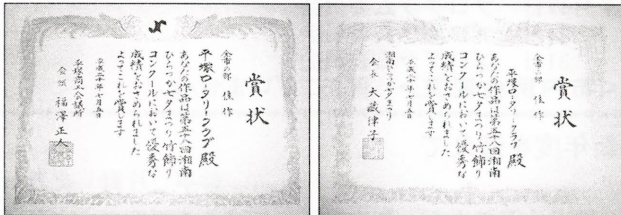 賞状
全市の部 佳作
平塚ロータリークラブ 殿
あなたの作品は第五十八回湘南
ひらつか七夕まつり竹飾り
コンクールにおいて優秀な
成績をおさめられました
よってこれを賞します
平成二十年七月五日
平塚商工会議所
会頭 福澤正人
賞状
全市の部 佳作
平塚ロータリークラブ 殿
あなたの作品は第五十八回湘南
ひらつか七夕まつり竹飾り
コンクールにおいて優秀な
成績をおさめられました
よってこれを賞します
平成二十年七月五日
湘南ひらつか七夕まつり
会長 大蔵律子